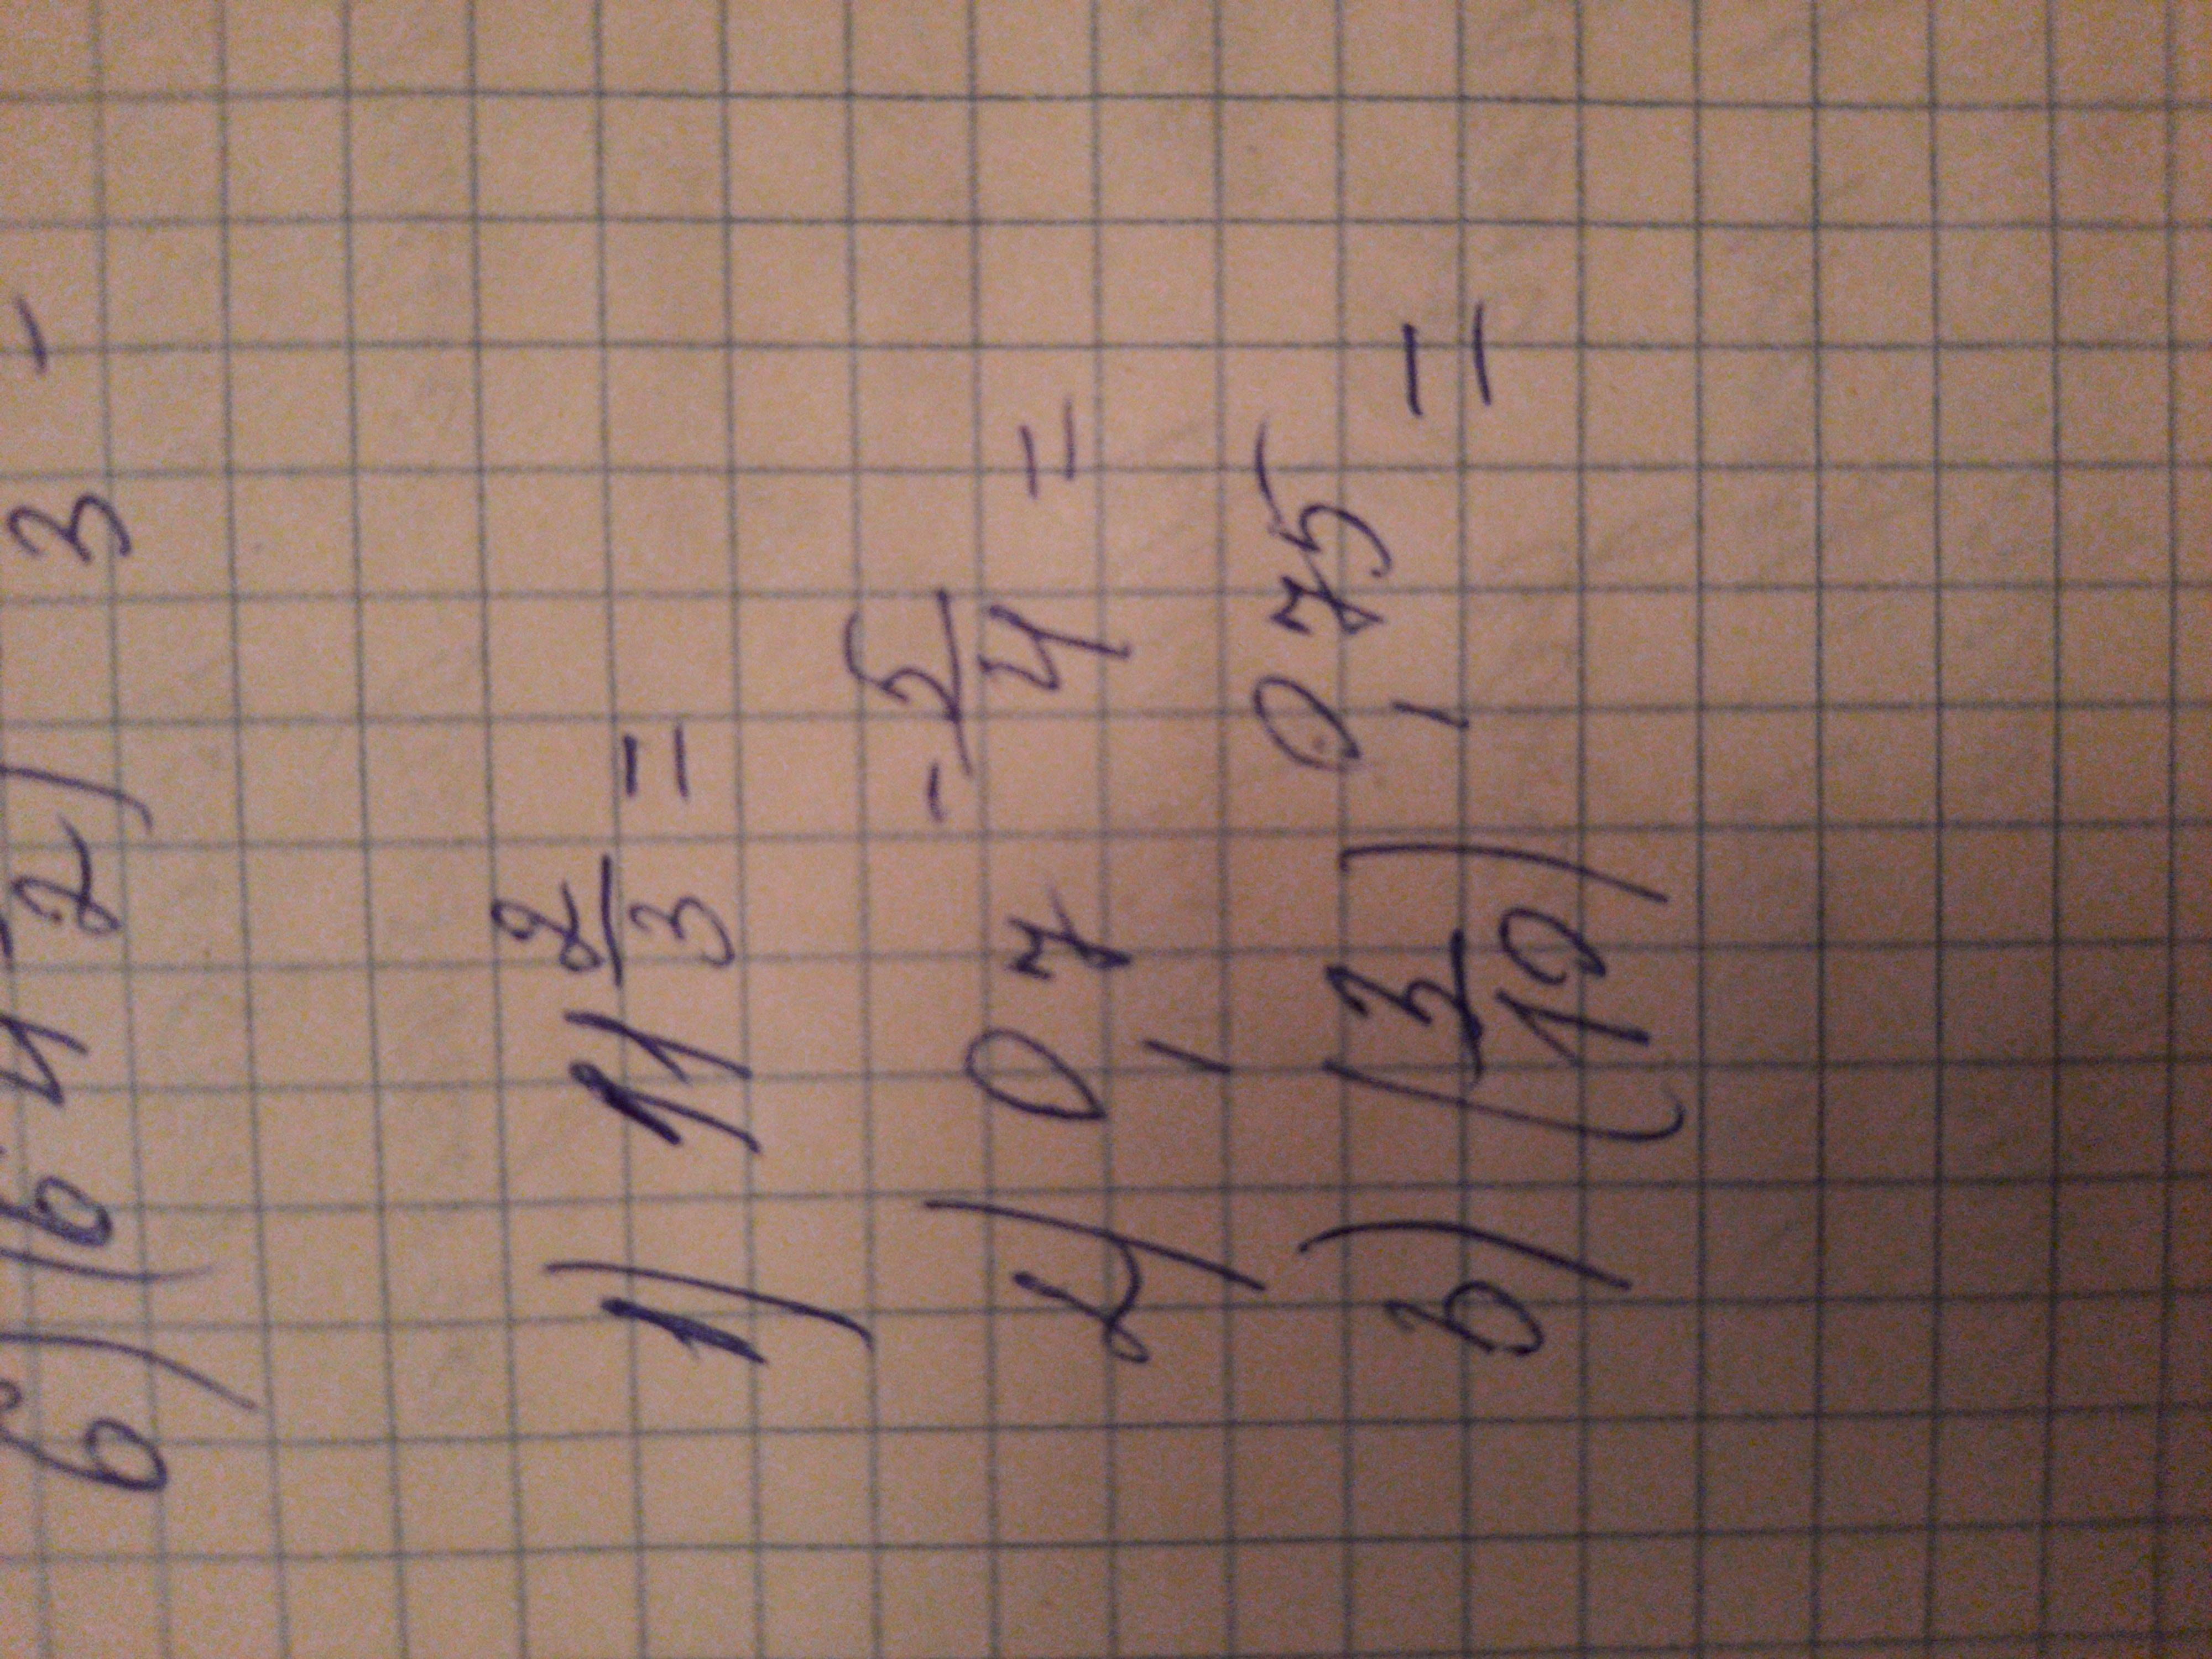 6) (6 4 2) 3
1) 11 2/3 =
2) 0,7 -5/4 =
в) (3/10) 0,75 =